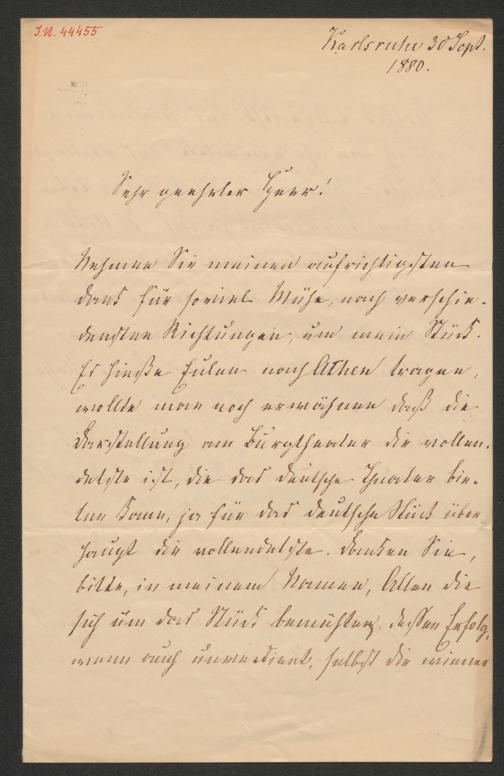 I.N. 44455
Karlsruhe 30 Sept.
1880.
Sehr geehrter Herr!
Nehmen Sie meinen aufrichtigsten
Dank für soviel Mühe, nach verschie-
densten Richtungen, um mein Stück.
Es hieße Eulen nach Athen tragen,
wollte man noch erwähnen daß die
Darstellung am Burgtheater die vollen-
detste ist, die das deutsche Theater bie-
ten kann, ja für das deutsche Stück über
haupt die vollendetste. Danken Sie,
bitte, in meinem Namen, Allen die
sich um das Stück bemühten, dessen Erfolg,
wenn auch unverdient, selbst die